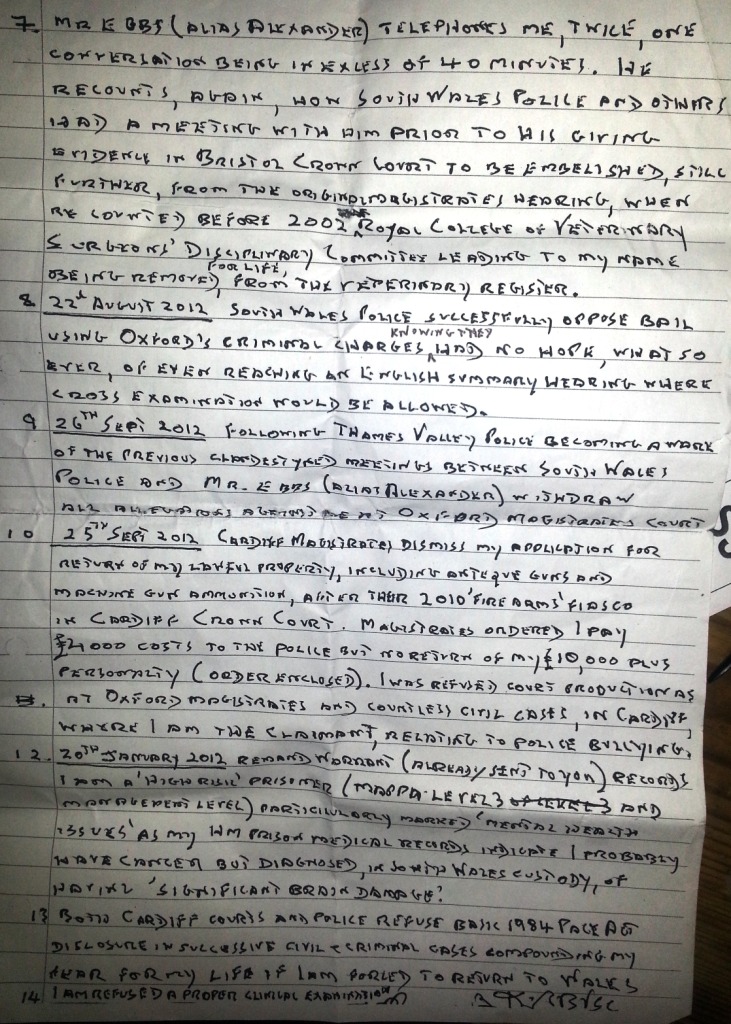 7. MR EGBS (ALIAS ALEXANDER) TELEPHONES ME, TWICE, ONE
CONVERSATION BEING IN EXCESS OF 40 MINUTES. HE
RECOUNTS, AGAIN, HOW SOUTH WALES POLICE AND OTHERS
HAD A MEETING WITH HIM PRIOR TO HIS GIVING
EVIDENCE IN BRISTOL CROWN COURT TO BE EMBELISHED, STILL
FURTHER, FROM THE ORIGINAL MAGISTRATES HEARING, WHEN
RECOUNTED BEFORE 2002 ROYAL COLLEGE OF VETERINARY
SURGEONS' DISCIPLINARY COMMITTEE LEADING TO MY NAME
BEING REMOVED FOR LIFE, FROM THE VETERINARY REGISTER.
8 22nd AUGUST 2012 SOUTH WALES POLICE SUCCESSFULLY OPPOSE BAIL
USING OXFORD'S CRIMINAL CHARGES, KNOWING THEY HAD NO HOPE, WHAT SO
EVER, OF EVEN REACHING AN ENGLISH SUMMARY HEARING WHERE
CROSS EXAMINATION WOULD BE ALLOWED.
9 26TH SEPT 2012 FOLLOWING THAMES VALLEY POLICE BECOMING AWARE
OF THE PREVIOUS MEETINGS BETWEEN SOUTH WALES
POLICE AND MR. EBBS (ALIAS ALEXANDER) WITHDRAW
ALL ALLEGATIONS AGAINST ME AT OXFORD MAGISTRATES COURT
10 25TH SEPT 2012 CARDIFF MAGISTRATES DISMISS MY APPLICATION FOR
RETURN OF MY LAWFUL PROPERTY, INCLUDING ANTEQUE GUNS AND
MACHINE GUN AMMUNITION, AFTER THEIR 2010 'FIREARMS' FIASCO
IN CARDIFF CROWN COURT. MAGISTRATES ORDERED I PAY
£4000 COSTS TO THE POLICE BUT NO RETURN OF MY £10,000 PLUS
PERSONALTY (ORDER ENCLOSED). I WAS REFUSED COURT PRODUCTION AS
AT OXFORD MAGISTRATES AND COUNTLESS CIVIL CASES, IN CARDIFF,
WHERE I AM THE CLAIMANT, RELATING TO POLICE BULLYING.
12. 20TH JANUARY 2012 REMAND WARRANT (ALREADY SENT TO YOU) RECORDS
I AM A 'HIGH RISK' PRISONER (MAPPA LEVEL 3 AND
MANAGEMENT LEVEL) PARTICULARLY MARKED 'MENTAL HEALTH
ISSUES' AS MY HM PRISON MEDICAL RECORDS INDICATE I PROBABLY
HAVE CANCER BUT DIAGNOSED, IN SOUTH WALES CUSTODY, OF
HAVING 'SIGNIFICANT BRAIN DAMAGE'.
13 BOTH CARDIFF COURTS AND POLICE REFUSE BASIC 1984 PACE ACT
DISCLOSURE IN SUCCESSIVE CIVIL & CRIMINAL CASES COMPOUNDING MY
FEAR FOR MY LIFE IF I AM FORCED TO RETURN TO WALES
14 I AM REFUSED A PROPER CLINICAL EXAMINATION